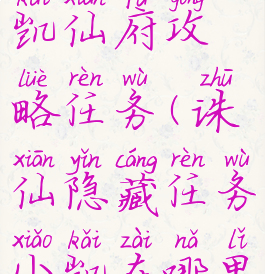 kǎi xiān fǔ gōng
凯仙府攻
lüè rèn wù zhū
略任务(诛
xiān yǐn cáng rèn wù
仙隐藏任务
xiǎo kǎi zài nǎ lǐ
小凯在哪里